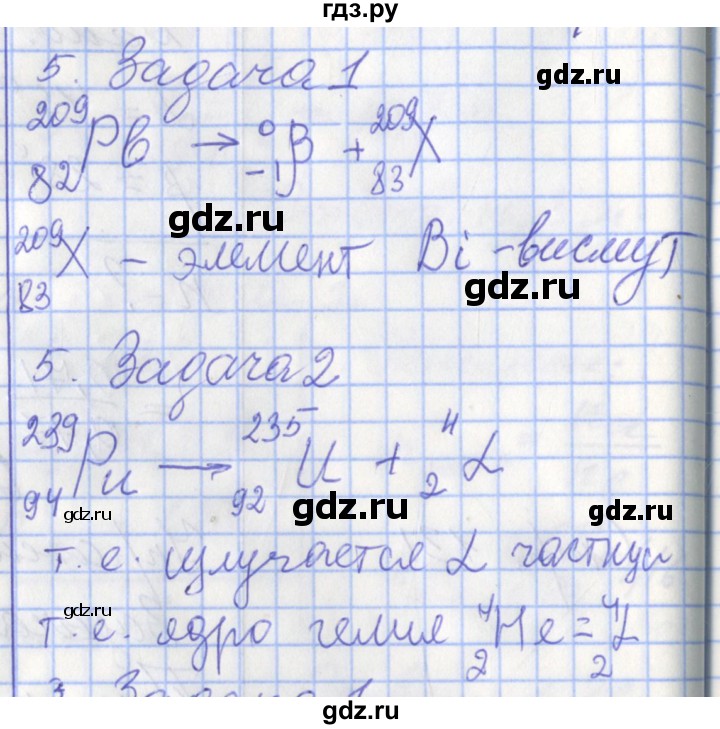 гдз.ру
5. Задача 1
gdz.ru
²⁰⁹₈₂Pb → ⁰₋₁β + ²⁰⁹₈₃X
gdz.ru
²⁰⁹₈₃X – элемент Bi – висмут
gdz.ru
5. Задача 2
²³⁹₉₄Pu → ²³⁵₉₂U + ⁴₂α
gdz.ru gdz.ru gdz.ru
т.е. излучается α частицы
gdz.ru
т.е. ядро гелия ⁴₂He = ⁴₂α
Задача 1
gdz.ru
gdz.ru